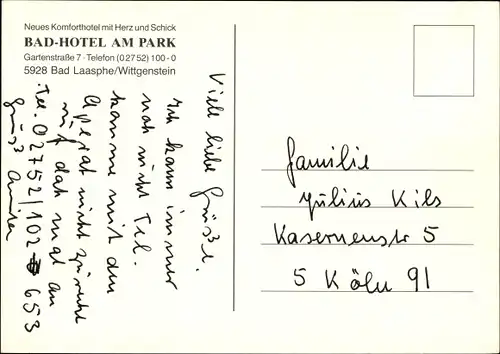 Neues Komforthotel mit Herz und Schick
BAD-HOTEL AM PARK
Gartenstraße 7 · Telefon (0 27 52) 100 - 0
5928 Bad Laasphe/Wittgenstein
Viele liebe Grüße.
Ich kann immer
noch nicht Tel.
komme mit den
Aperat nicht zurecht
ruf doch mal an
Tel. 02752/102 653
Gruß
Familie
Julius Kils
Kasernenstr 5
5 Köln 91